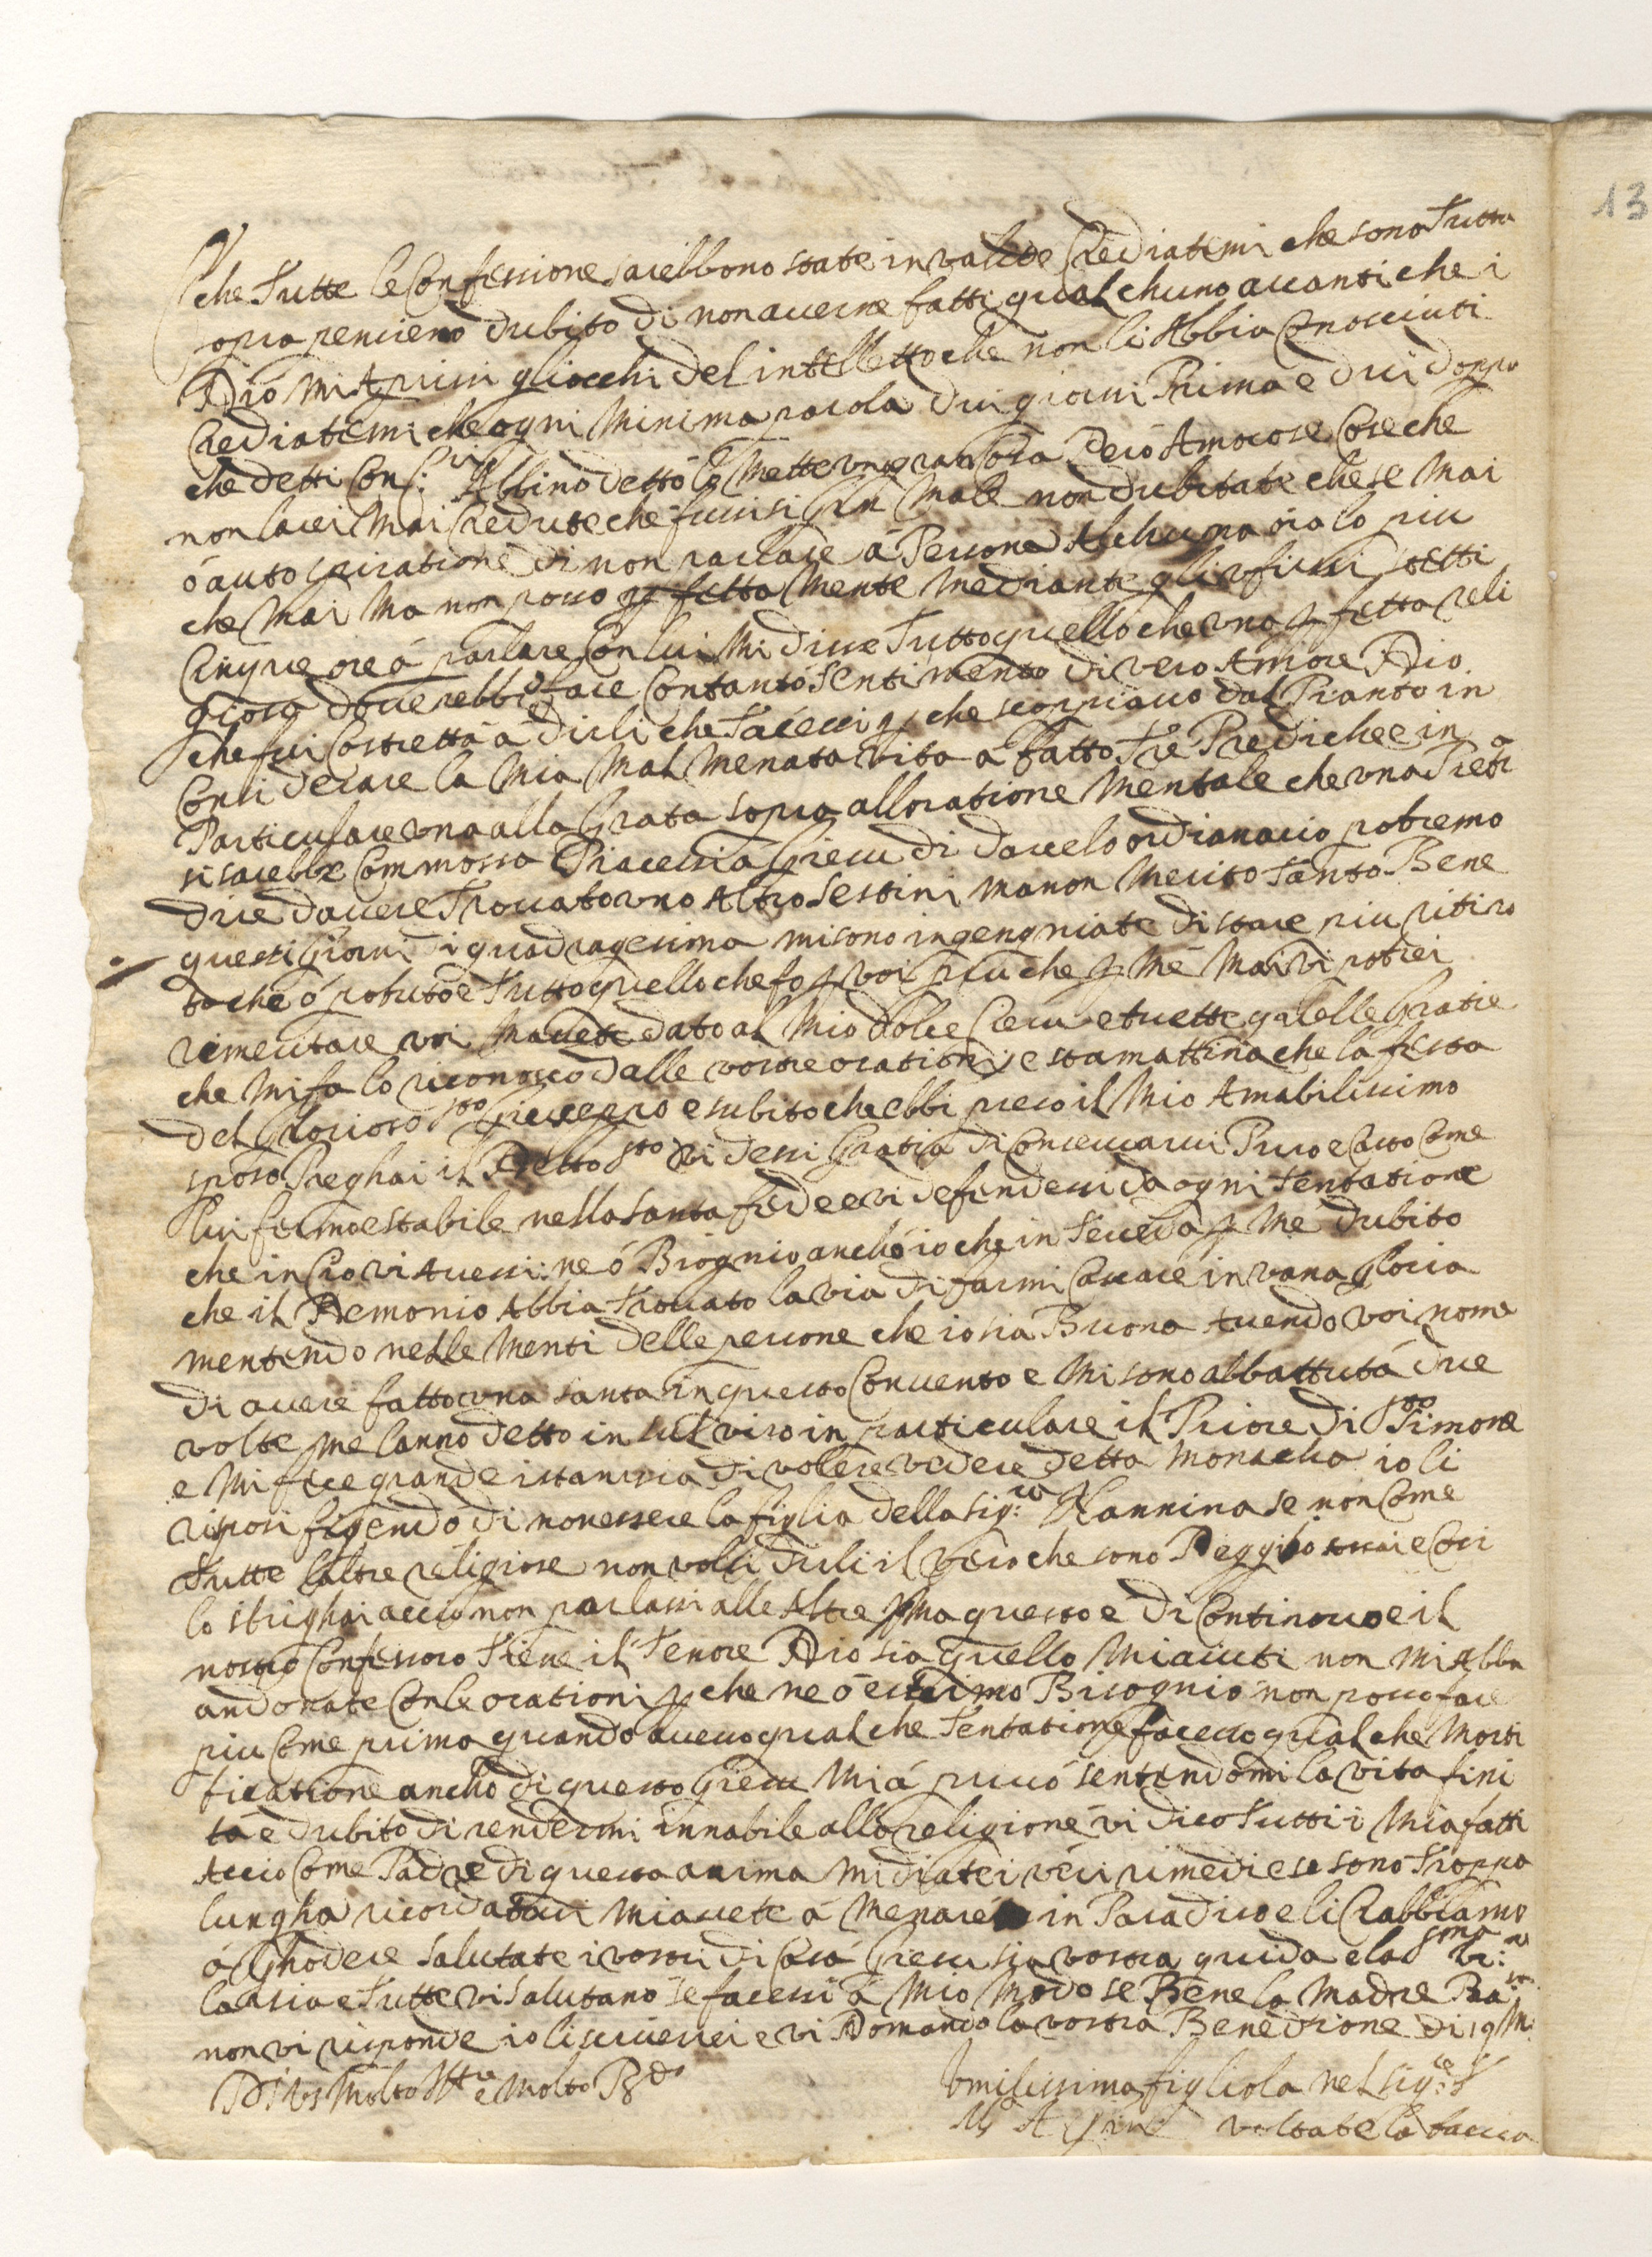 13
che Tutte le Confessione sarebbono state invalide Crediatemi che sono Tutta
opra pensieno dubito di non averne fatti qual chuno avanti che i
Dio mi Aprissi gliocchi del intelletto che non li Abbia Conosciuti
Crediatemi che ogni Minima parola dui giorni Prima e dui doppo
che detti Con Albino detto Mette ungran Però Amorose Cose che
non larei Mai Credute che fussi si Gra Male non dubitate che se Mai
ò auto spiratione di non parlare à Persona Alchuna óra lo piu
che Mai Ma non posso p fetta Mente Mediante gli ufissi stetti
Cinque ore à parlare Con lui Mi disse Tutto quello che una p fetta reli
giosa doverebbe fare Con tanto Sentimento di vero Amore Dio
che fui Costretta à dirli che Tacessi p che scoppiavo dal Pianto in
Considerare la Mia Mal Menata vita à fatto Tre Prediche e in
Particulare una alla Grata sopra alloratione Mentale che una Pietra
si sarebbe Commossa Piacessia Giesu di darcelo ordianario potremo
dire davere Trovato uno Altro Sestini ma non Merito Tanto Bene
questi Giorni di quadragesima mi sono ingengniate di stare piu ritira
ta che ó potuto e Tutto quello che fo p voi piu che p Mé Mai vi potrei
rimeritare voi Mavete dato al Mio dolce Giesu e tuette quelle Gratie
che Mi fa lo riconosco dalle vostre orationi e stamattina che la festa
del Glorioso Sto Giuseppo e subito che ebbi preso il Mio Amabilissimo
sposo Preghai il Detto Sto vi dessi Gratia di Conservarvi Puro e Casto Come
lui fermo e stabile nella Santa fede e vi defendessi da ogni Tentatione
che in Ciò vi Avessi ne ó Biognio anchó io che in Tereda p Me dubito
che il Demonio Abbia Trovato la via di farmi Cascare in vana gloria
mentendo nelle Menti delle persone che io sia Buona Avendo voi nome
di avere fatto una santa in questo Convento e Mi sono abbattuta due
volte me lanno detto in sul viso in particulare il Priore di Sto Simone
e Mi fece grande istansia di volere vedere detta Monacha io li
risposi figendo di non essere la figlia della sig:ra Nannina se non Come
Tutte laltre religiose non volli dirli il vero che sono Peggio e Cosi
lo sbrighai accio non parlassi alle Altre Ma questo è di Continovo e il
nostro Confessoro Tiene il Tenore Dio sia quello Mi aiuti non Mi Abba
andonate Con le orationi p che ne ó estrimo Bisognio non posso fare
piu Come prima quando Avevo qual che Tentatione facevo qual che Morti
ficatione ancho di questo Giesu Mi á privó sentendomi la vita fini
ta e dubito di rendermi innabile alla religione vi dico Tutti i Mia fatti
Accio Come Padre di questa anima Mi diate i veri rimedi e se sono Troppa
lungha ricordatevi Mi avete á Menare in Paradiso e li Cabbiamo
á Ghodere Salutate i vostri di Casa Giesu sia vostra guida e la Sma
lassia e Tutte vi Salutano se facessi à Mio Modo se Bene la Madre
non vi risponde io li scriverrei e vi Domando la vostra Benedsione di 19 M:
Di Vs Molto Ill.re e Molto Rdo
Umilissima figliola nel sig:re
voltate la faccia